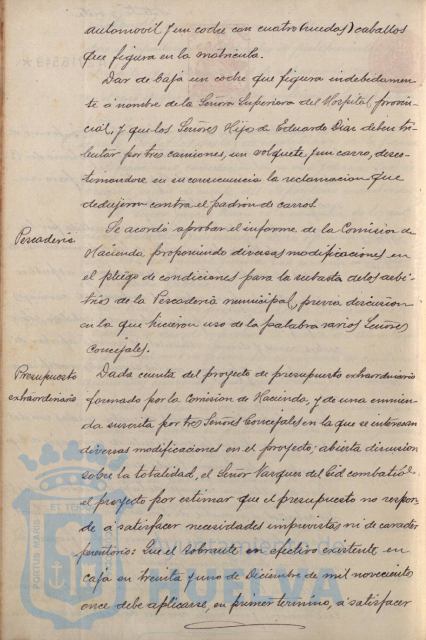 automovil y un coche con cuatro (ruedas) caballos
que figura en la matricula.
Dar de baja un coche que figura indebidamen-
te á nombre de la Señora Superiora del Hospital provin-
cial, y que los Señores Hijo de Eduardo Diaz deben tri-
butar por tres camiones, un volquete y un carro, deses-
timandose en su consecuencia la reclamacion que
dedujeron contra el padrón de carros.
Pescaderia
Se acordó aprobar el informe de la Comision de
Hacienda, proponiendo diversas modificaciones en
el pliego de condiciones para la subasta de los arbi-
trios de la Pescaderia municipal, previa discusion
en la que hicieron uso de la palabra varios Señores
Concejales.
Presupuesto
extraordinario
Dada cuenta del proyecto de presupuesto extraordinario
formado por la Comision de Hacienda, y de una enmien-
da suscrita por tres Señores Concejales en la que se interesan
diversas modificaciones en el proyecto; abierta discusion
sobre la totalidad, el Señor Vazquez del Cid combatió
el proyecto por estimar que el presupuesto no respon-
de á satisfacer necesidades imprevistas ni de caracter
perentorio: Que el sobrante en efectivo existente en
caja en treinta y uno de Diciembre de mil novecientos
once debe aplicarse, en primer termino, á satisfacer
PORTUS MARIS
Ayuntamiento de
HUELVA